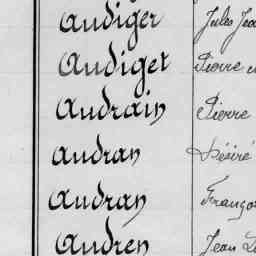 Audiger Jules
Audiget Pierre
Audrain Pierre
Audran Désiré
Audran
Audren Jean